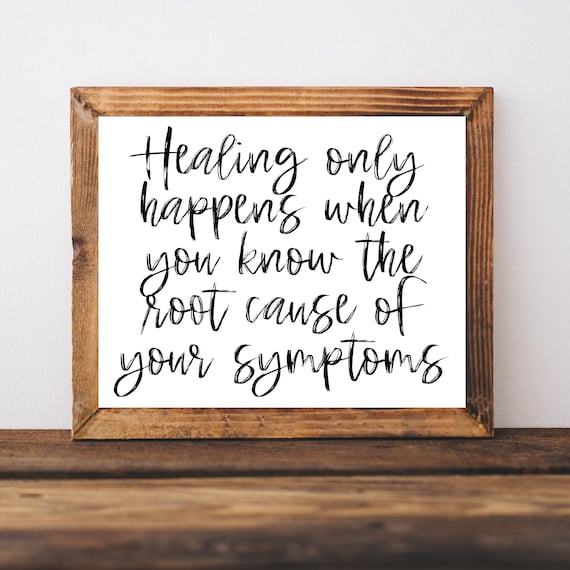 Healing only
happens when
you know the
root cause of
your symptoms